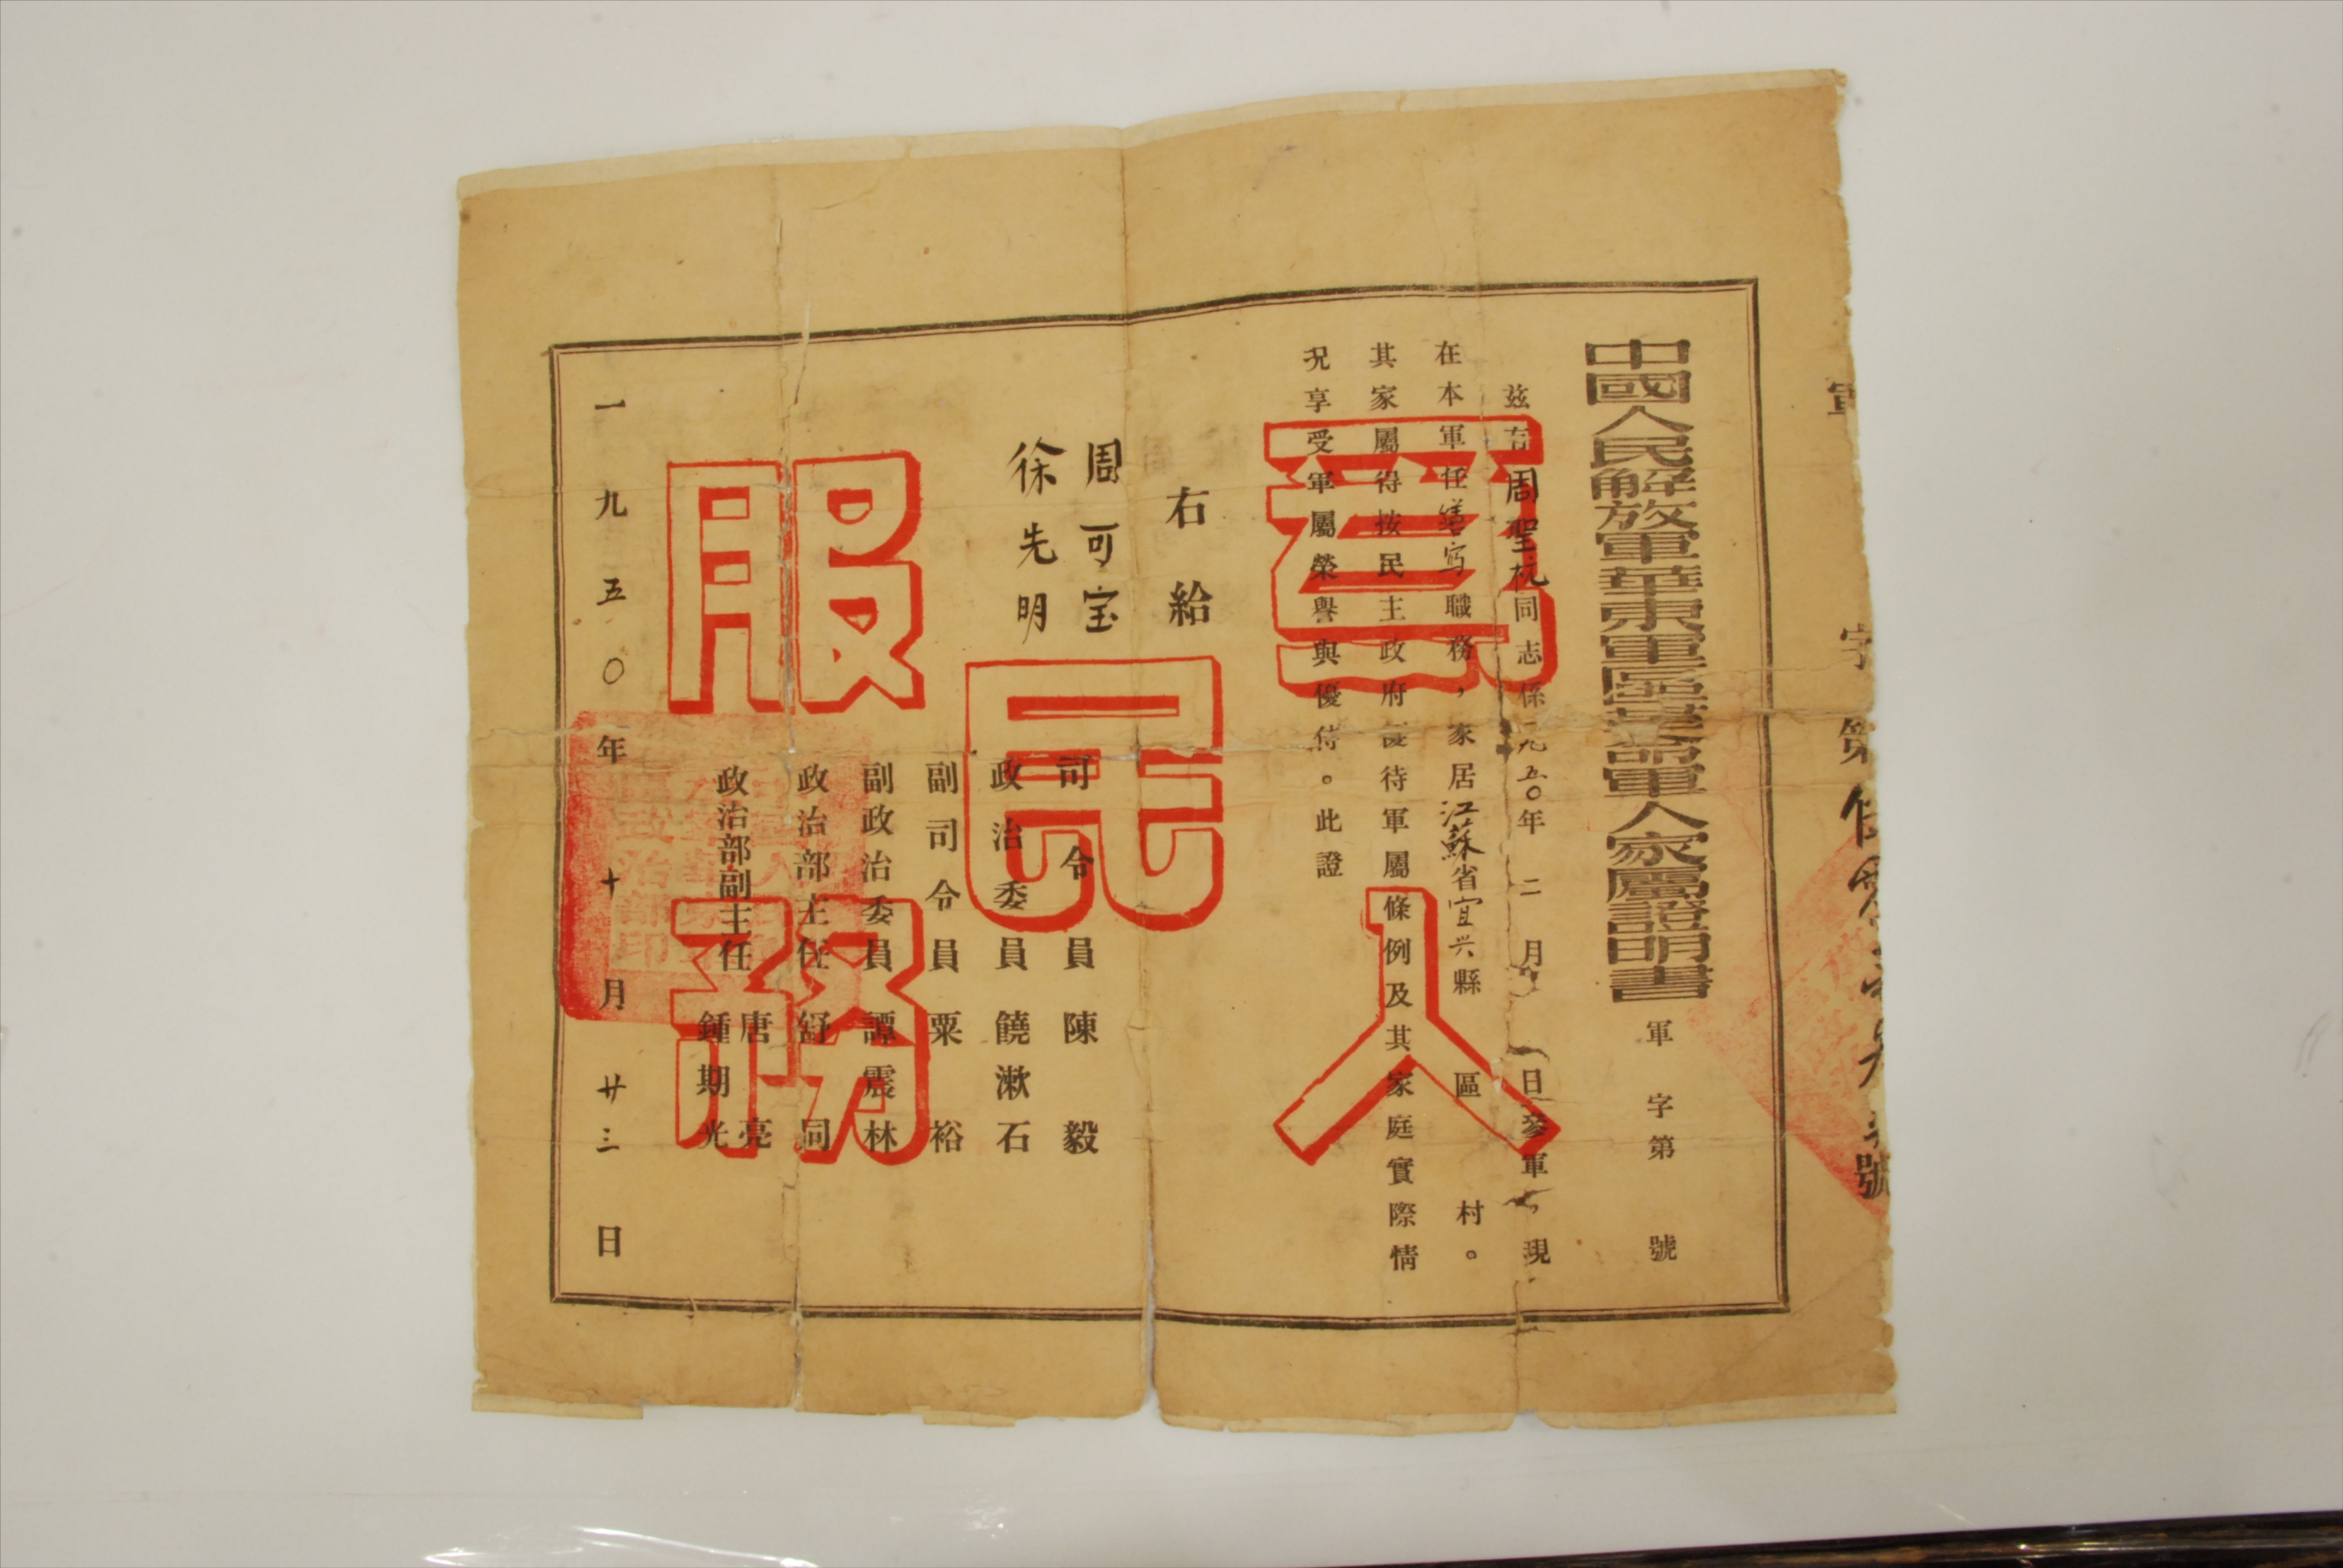 字第
號
中國人民解放軍華東軍區革命軍人家屬證明書
軍字第 號
茲有周聖杭同志係一九五〇年二月 日參軍現
在本軍任繕寫職務，家居江蘇省宜兴縣 區 村。
其家屬得按民主政府優待軍屬條例及其家庭實際情
況享受軍屬榮譽與優待。此證
右給
周可宝
徐先明
司令員 陳毅
政治委員 饒漱石
副司令員 粟裕
副政治委員 譚震林
政治部主任 舒同
政治部副主任 唐亮
鍾期光
一九五〇年十月廿三日
為人民服務
政治部印